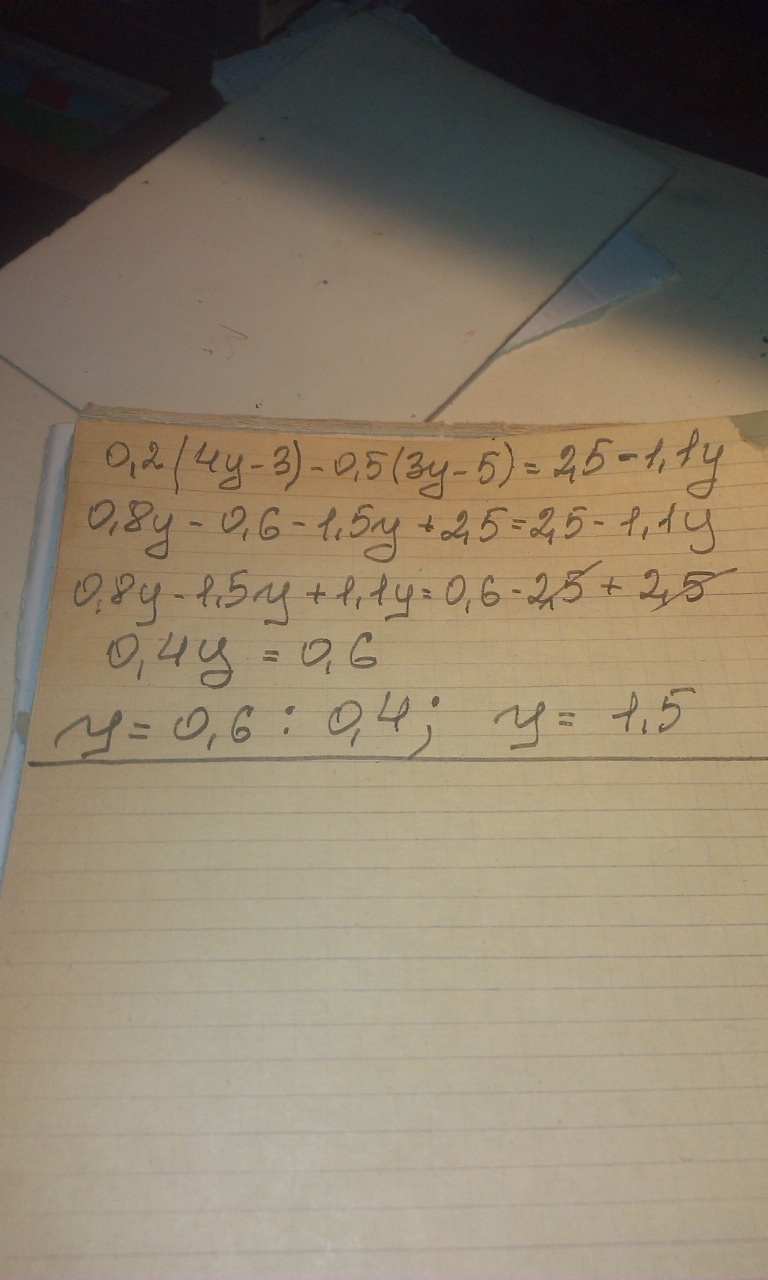 0,2(4y-3)-0,5(3y-5)=2,5-1,1y
0,8y-0,6-1,5y+2,5=2,5-1,1y
0,8y-1,5y+1,1y=0,6-2,5+2,5
0,4y=0,6
y=0,6:0,4; y=1,5